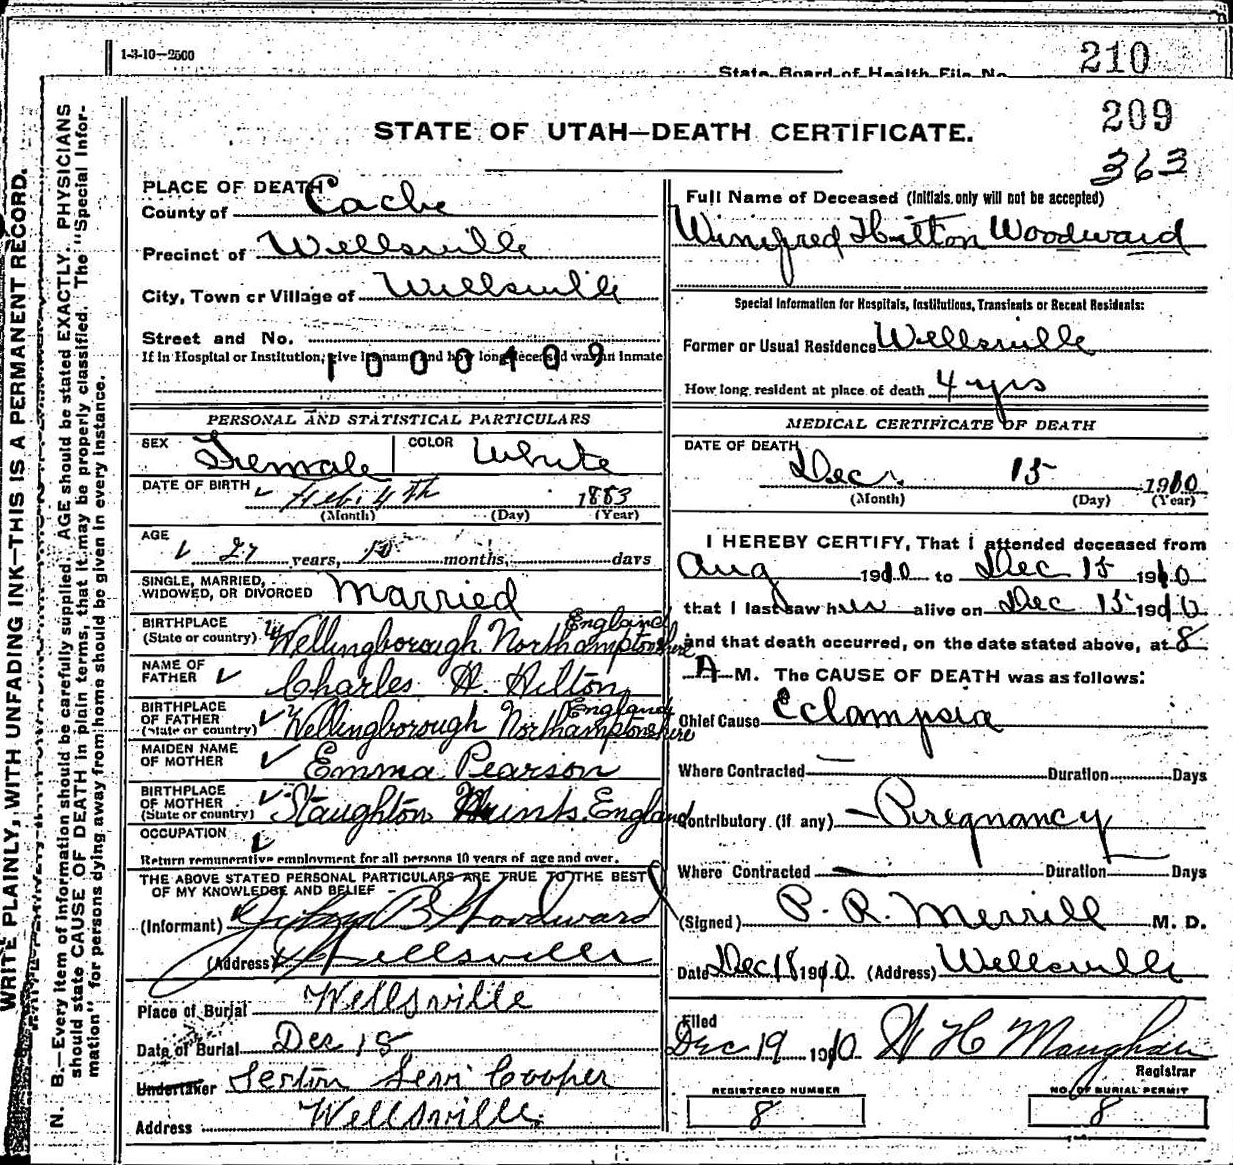 1-3-10—2500
State Board of Health File No. 210
209
363
STATE OF UTAH—DEATH CERTIFICATE.
WRITE PLAINLY, WITH UNFADING INK—THIS IS A PERMANENT RECORD.
N. B.—Every item of information should be carefully supplied. AGE should be stated EXACTLY. PHYSICIANS
should state CAUSE OF DEATH in plain terms, that it may be properly classified. The "Special Infor-
mation" for persons dying away from home should be given in every instance.
PLACE OF DEATH
County of Cache
Precinct of Wellsville
City, Town or Village of Wellsville
Street and No.
If in Hospital or Institution, give its name and how long deceased was an inmate
1000409
PERSONAL AND STATISTICAL PARTICULARS
SEX Female COLOR White
DATE OF BIRTH Feb. 4th 1883
(Month) (Day) (Year)
AGE 27 years, 10 months, days
SINGLE, MARRIED,
WIDOWED, OR DIVORCED Married
BIRTHPLACE England
(State or country) Wellingborough Northamptonshire
NAME OF
FATHER Charles H. Hilton
BIRTHPLACE
OF FATHER England
(State or country) Wellingborough Northamptonshire
MAIDEN NAME
OF MOTHER Emma Pearson
BIRTHPLACE
OF MOTHER Staughton Hunts. England
(State or country)
OCCUPATION
Return remunerative employment for all persons 10 years of age and over.
THE ABOVE STATED PERSONAL PARTICULARS ARE TRUE TO THE BEST
OF MY KNOWLEDGE AND BELIEF
(Informant) John B Woodward
(Address) Wellsville
Place of Burial Wellsville
Date of Burial Dec 18
Undertaker Sexton Levi Cooper
Address Wellsville
Full Name of Deceased (Initials only will not be accepted)
Winifred Hilton Woodward
Special Information for Hospitals, Institutions, Transients or Recent Residents:
Former or Usual Residence Wellsville
How long resident at place of death 4 yrs
MEDICAL CERTIFICATE OF DEATH
DATE OF DEATH
Dec. 15 1910
(Month) (Day) (Year)
I HEREBY CERTIFY, That I attended deceased from
Aug 1910 to Dec 15 1910
that I last saw her alive on Dec 15 1910
and that death occurred, on the date stated above, at 8
A M. The CAUSE OF DEATH was as follows:
Chief Cause Eclampsia
Where Contracted Duration Days
Contributory (if any) Pregnancy
Where Contracted Duration Days
(Signed) P. R. Merrill M. D.
Date Dec 18 1910. (Address) Wellsville
Filed
Dec 19 1910 W H Maughan
Registrar
REGISTERED NUMBER NO. OF BURIAL PERMIT
8 8